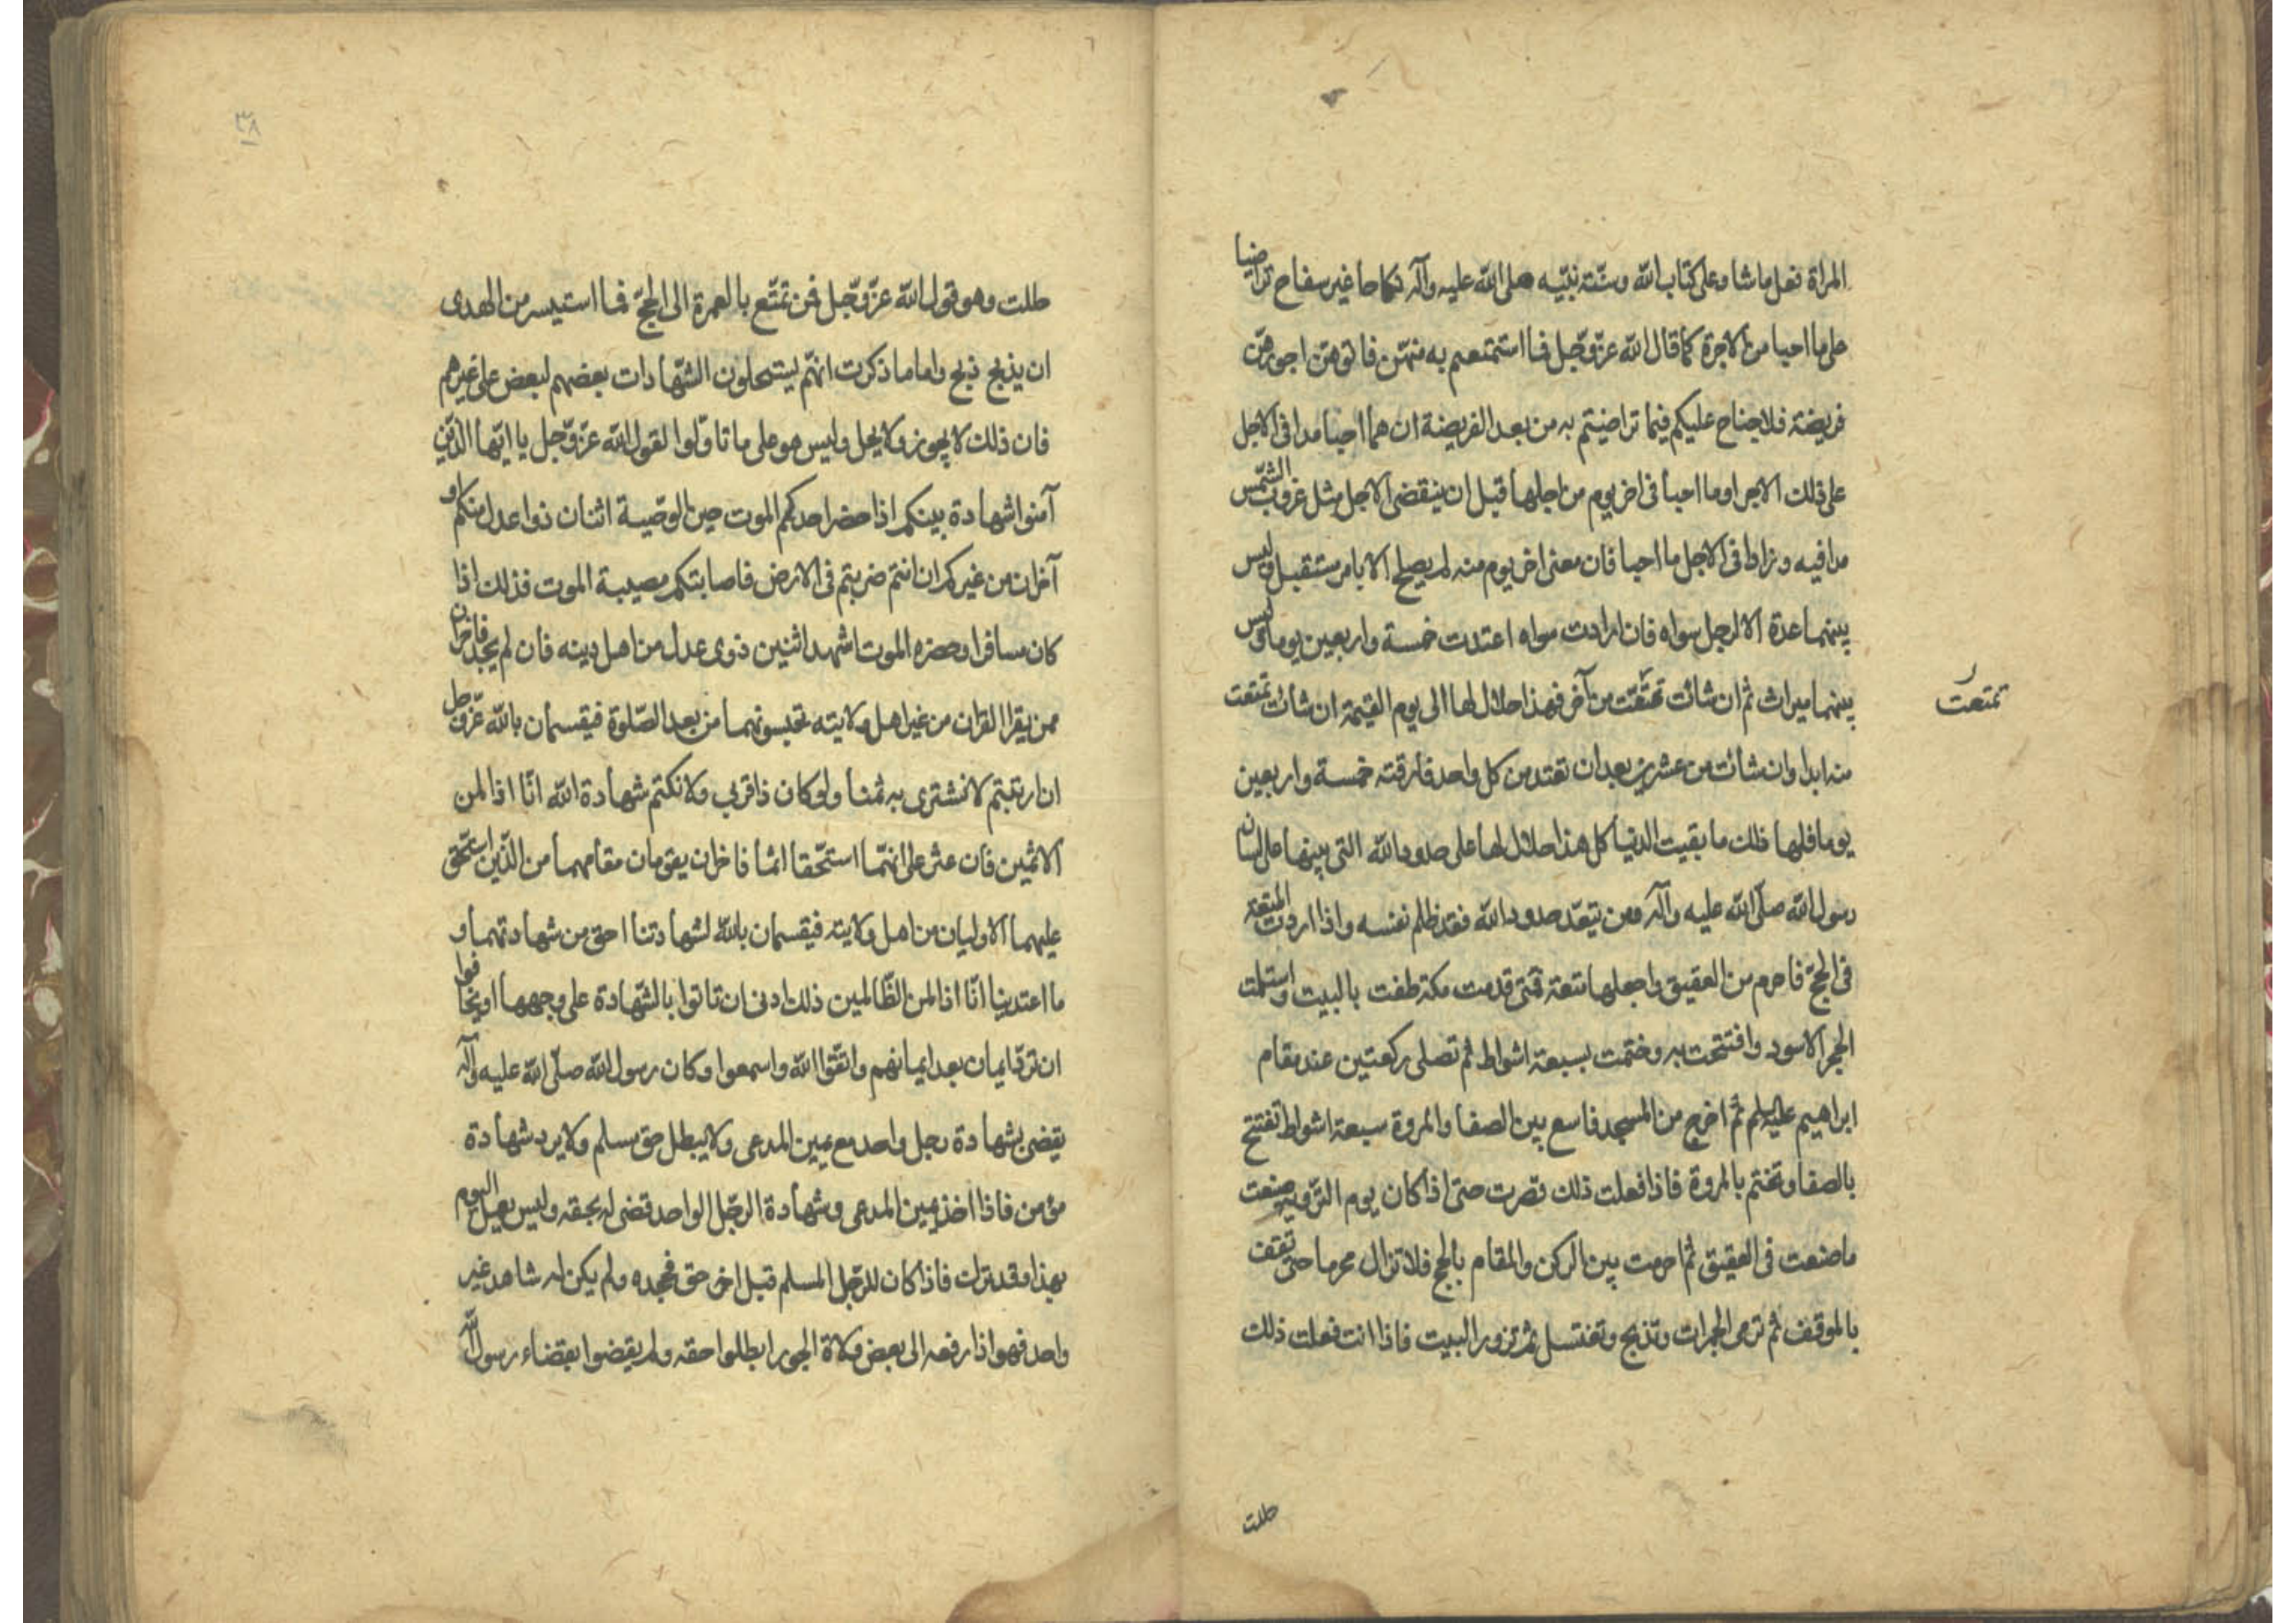 المراة فعل ما شا وعلى كتاب الله وسنّة نبيّه صلى الله عليه وآله نكاحا غير سفاح تراضيا
على ما احبا من الاجرة كما قال الله عزّ وجّل فما استمتعم به منهّن فاتوهّن اجورهّن
فريضة فلا جناح عليكم فيما تراضيتم به من بعد الفريضة ان هما احبا مدا فى الاجل
على ذلك الاجر او ما احبا فى اخر يوم من اجلها قبل ان ينقضى الاجل مثل غروب الشّمس
مدا فيه وزادا فى الاجل ما احبا فان معنى اخر يوم منه لم يصلح الا بامر مستقبل وليس
بينهما عدة الا لرجل سواه فان ارادت سواه اعتدت خمسة واربعين يوما وليس
بينهما ميراث ثم ان شائت تمتّعت من آخر فهذا حلال لها الى يوم القيمة ان شائت تمتعت
منه ابدا وان شائت من عشرين بعد ان تعتد من كل واحد فارقته خمسة واربعين
يوما فلها ذلك ما بقيت الدنيا كل هذا حلال لها على حدود الله التى بينها على لسان
رسول الله صلّى الله عليه وآله ومن يتعّد حدود الله فقد ظلم نفسه واذا اردت المتعة
فى الحجّ فاحرم من العقيق واجعلها متعة فمتى قدمت مكة طفت بالبيت واستلمت
الحجر الاسود وافتتحت به وختمت بسبعة اشواط ثم تصلى ركعتين عند مقام
ابراهيم عليه السلم ثم اخرج من المسجد فاسع بين الصفا والمروة سبعة اشواط تفتتح
بالصفا وتختم بالمروة فاذا فعلت ذلك قصرت حتى اذا كان يوم التروية صنعت
ما صنعت فى العقيق ثم احرمت بين الركن والمقام بالحج فلا تزال محرما حتى تقف
بالموقف ثم ترمى الجمرات وتذبح وتغتسل ثم تزور البيت فاذا انت فعلت ذلك
تمتعت
حللت
٣٨
حللت وهو قول الله عزّ وجّل فمن تمتّع بالعمرة الى الحجّ فما استيسر من الهدى
ان يذبح ذبح واما ما ذكرت انهّم يستحلون الشّهادات بعضهم لبعض على غيرهم
فان ذلك لا يجوز ولا يحل وليس هو على ما تاوّلوا لقول الله عزّ وجّل يا ايّها الذّين
آمنوا شهادة بينكم اذا حضر احدكم الموت حين الوصّية اثنان ذوا عدل منكم او
آخران من غيركم ان انتم ضربتم فى الارض فاصابتكم مصيبة الموت فذلك اذا
كان مسافرا وحضره الموت اشهد اثنين ذوى عدل من اهل دينه فان لم يجد فاخران
ممن يقرا القران من غير اهل ولايته تحبسونهما من بعد الصّلوة فيقسمان بالله عزّ وجل
ان ارتبتم لا نشترى به ثمنا ولو كان ذا قربى ولا نكتم شهادة الله انّا اذا لمن
الاثمين فان عثر على انهّما استحّقا اثما فاخران يقومان مقامهما من الذّين استحّق
عليهما الاوليان من اهل ولايته فيقسمان بالله لشهادتنا احق من شهادتهما و
ما اعتدينا انّا اذا لمن الظّالمين ذلك ادنى ان تاتوا بالشّهادة على وجهها او يخافوا
ان تردّ ايمان بعد ايمانهم واتّقوا الله واسمعوا وكان رسول الله صلّى الله عليه وآله
يقضى بشهادة رجل واحد مع يمين المدعى ولا يبطل حق مسلم ولا يرد شهادة
مؤمن فاذا اخذ يمين المدعى وشهادة الرجّل الواحد قضى له بحقه وليس يعمل اليوم
بهذا وقد ترك فاذا كان للرجّل المسلم قبل اخر حق فجحده ولم يكن له شاهد غير
واحد فهو اذا رفعه الى بعض ولاة الجور ابطلوا حقه ولم يقضوا بقضاء رسول الله